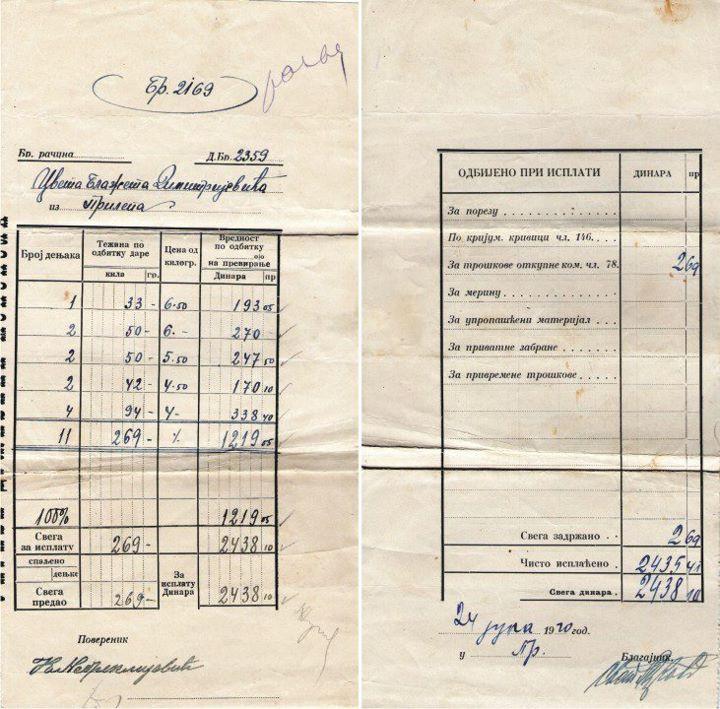 Бр. 2169
Бр. рачуна Д.Бр. 2359
Цвета Блажета Димитријевића
из Прилепа
Број дењака Тежина по одбитку даре Цена од килогр. Вредност по одбитку на превирање
кила гр. Динара пр
1 33 - 6.50 193 05
2 50 - 6. - 270 -
2 50 - 5.50 247 50
2 42 - 4.50 170 10
4 94 - 4 - 338 40
11 269 - 1219 05
100% 1219 05
Свега за исплату 269 - 2438 10
спаљено дењке За исплату Динара
Свега предао 269 - 2438 10
Повереник
ОДБИЈЕНО ПРИ ИСПЛАТИ ДИНАРА пр
За порезу
По кријум. кривици чл. 146.
За трошкове откупне ком. чл. 78. 2 69
За мерину
За упропашћени материјал
За приватне забране
За привремене трошкове
Свега задржано 2 69
Чисто исплаћено 2435 41
Свега динара 2438 10
24 јула 1920 год.
у Пр.
Благајник,